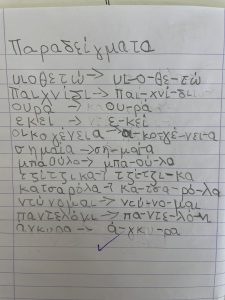 Παραδείγματα
υιοθετώ → υι-ο-θε-τώ
παιχνίδι → παι-χνί-δι
ουρά → ου-ρά
εκεί → ε-κεί
οικογένεια → οι-κογέ-νει-α
σημαία → ση-μαί-α
μπαούλο → μπα-ού-λο
τζίτζικα τζί-τζι-κα
κατσαρόλα κα-τσα-ρό-λα
ντύνομαι → ντύ-νο-μαι
παντελόνι → πα-ντε-λό-νι
άγκυρα → ά-γκυ-ρα